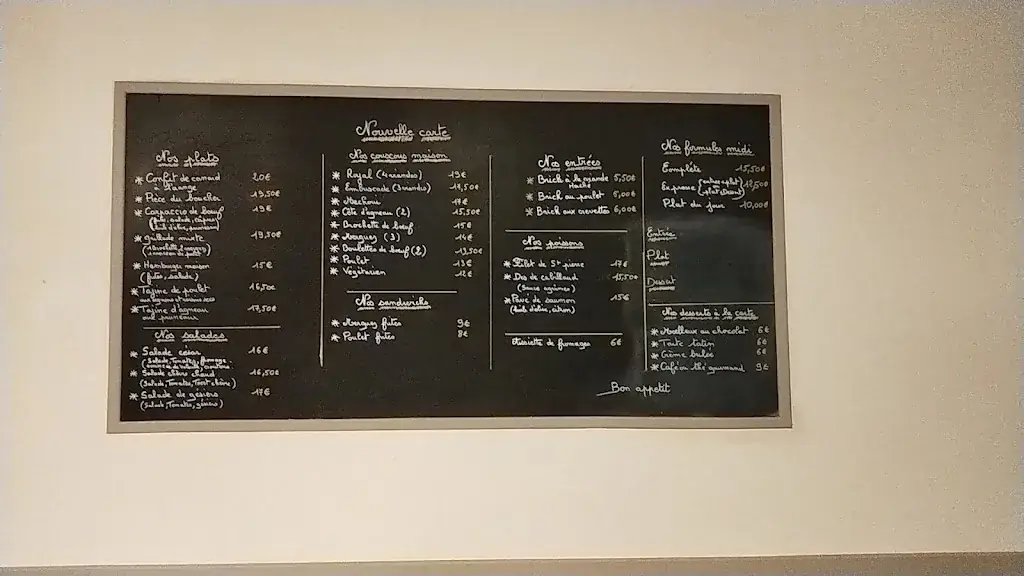 Nouvelle carte
Nos plats
* Confit de canard 20€
à l'orange
* Pièce du boucher 19,50€
* Carpaccio de bœuf 19€
* Grillade mixte 19,50€
* Hamburger maison 15€
(frites, salade)
* Tajine de poulet 16,50€
* Tajine d'agneau 17,50€
aux pruneaux
Nos salades
* Salade césar 16€
* Salade chèvre chaud 16,50€
(Salade, Tomates, Toast chèvre)
* Salade de gésiers 17€
(Salade, Tomates, gésiers)
Nos couscous maison
* Royal (4 viandes) 19€
* Embuscade (3 viandes) 18,50€
* Mechoui 17€
* Côte d'agneau (2) 15,50€
* Brochette de bœuf 15€
* Merguez (3) 14€
* Boulettes de bœuf (2) 13,50€
* Poulet 13€
* Végétarien 12€
Nos sandwichs
* Merguez frites 9€
* Poulet frites 8€
Nos entrées
* Brick à la viande 5,50€
Haché
* Brick au poulet 5,00€
* Brick aux crevettes 6,00€
Nos poissons
* Filet de St pierre 17€
* Dos de cabillaud 15,50€
* Pavé de saumon 15€
(huile d'olive, citron)
Assiette de fromages 6€
Nos formules midi
Complète 15,50€
Express (entrée+plat) 12,50€
(plat Dessert)
Plat du jour 10,00€
Entrée
Plat
Dessert
Nos desserts à la carte
* Moelleux au chocolat 6€
* Tarte tatin 6€
* Crème brulée 6€
* Café ou thé gourmand 9€
Bon appetit